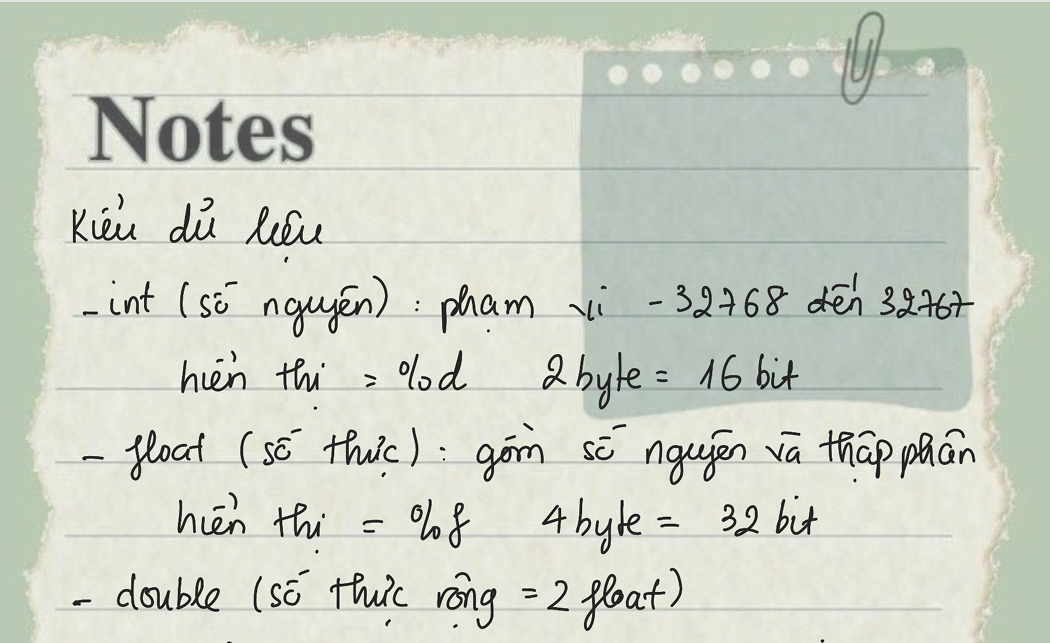 Notes
Kiểu dử liệu
- int (số nguyên) : phạm vi - 32768 đến 32767
hiển thị = %d 2 byte = 16 bit
- float (số thực) : gồm số nguyên và thập phân
hiển thị = %f 4 byte = 32 bit
- double (số thực rộng = 2 float)